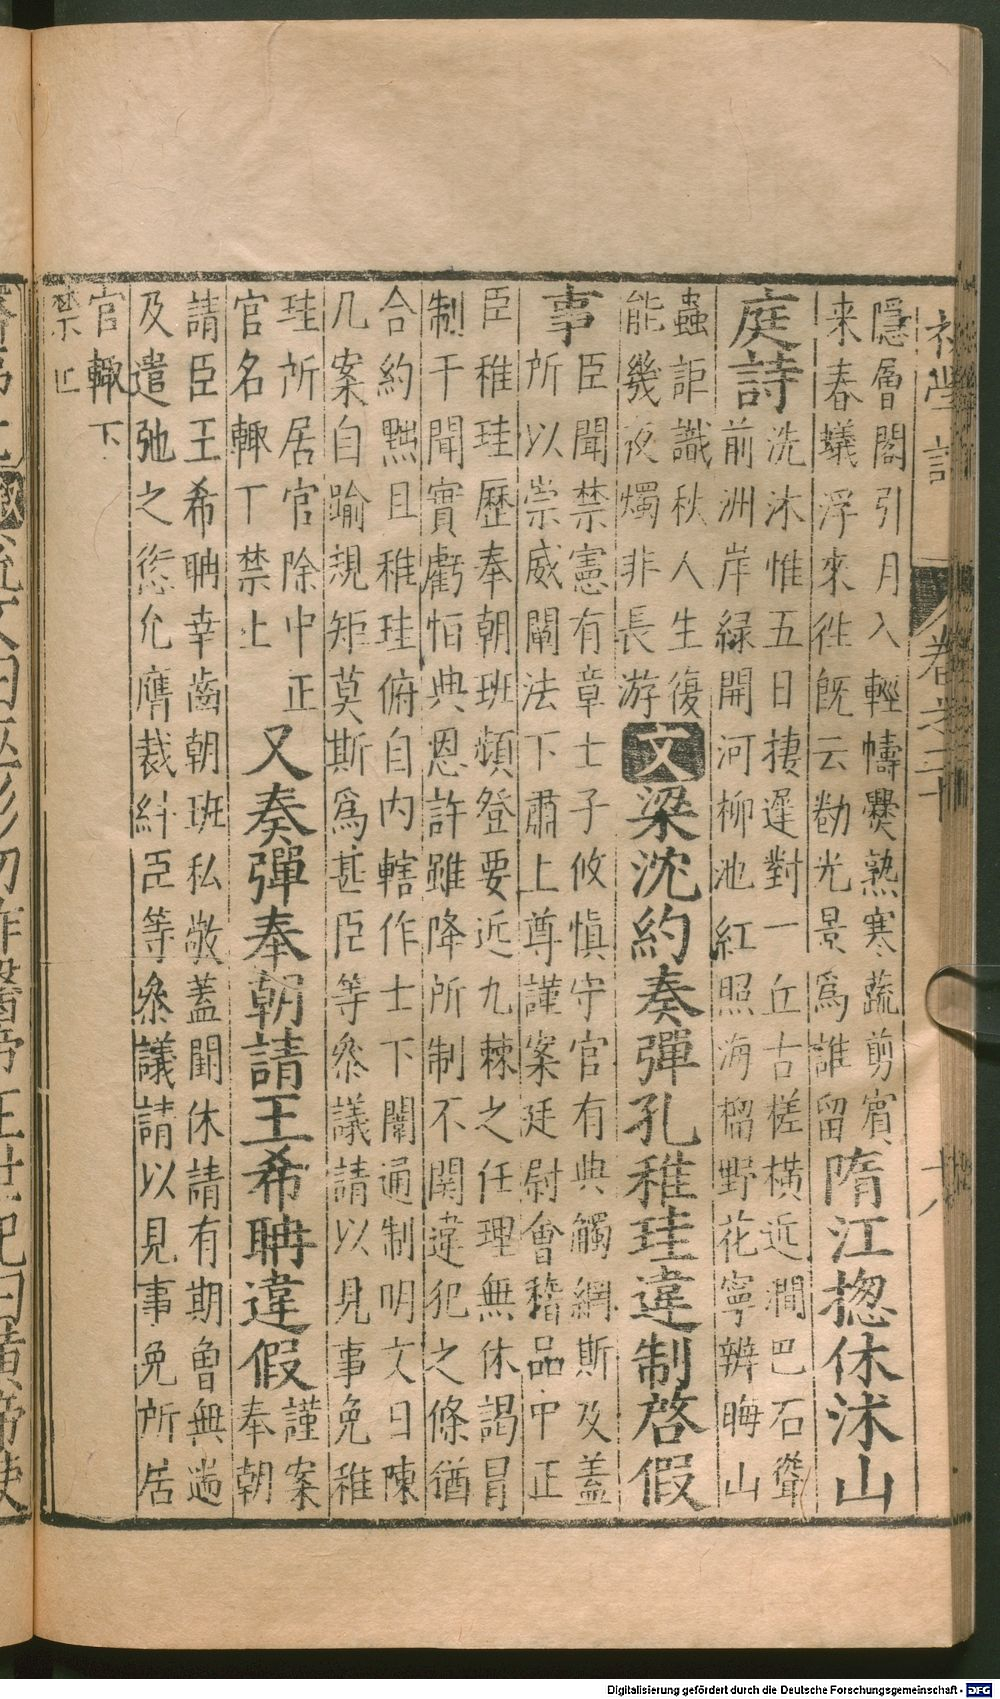 隱層閣引月入輕幬爨熟寒蔬剪賓
来春蟻浮來徃旣云勌光景爲誰留
隋江揔休沐山
庭詩
洗沐惟五日捿遲對一丘古槎横近澗巴石聳
前洲岸綠開河柳池紅照海榴野花寧辨晦山
蟲詎識秋人生復
能幾夜燭非長游
文梁沈約奏彈孔稚珪違制啓假
事
臣聞禁憲有章士子攸慎守官有典觸網斯及蓋
所以崇威闡法下肅上尊謹案廷尉會稽品中正
臣稚珪歷奉朝班頻登要近九棘之任理無休謁冒
制干聞實虧恒典恩許雖降所制不関違犯之條猶
合約黜且稚珪俯自内轄作士下闈通制明文日陳
几案自踰規矩莫斯爲甚臣等叅議請以見事免稚
珪所居官除中正
官名輙丁禁止
又奏彈奉朝請王希聃違假
謹案
奉朝
請臣王希聃幸齒朝班私敞蓋闈休請有期曾無遄
及遣弛之愆允膺裁糾臣等叅議請以見事免所居
官輙下
禁止
卷之二十
Digitalisierung gefördert durch die Deutsche Forschungsgemeinschaft - DFG